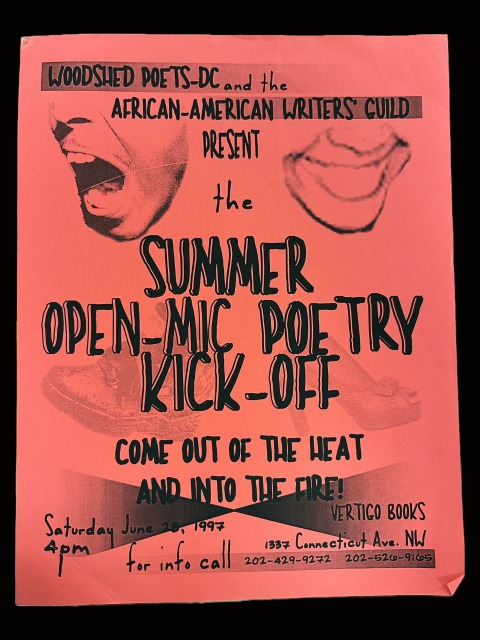 WOODSHED POETS-DC and the
AFRICAN-AMERICAN WRITERS' GUILD
PRESENT
the
SUMMER
OPEN-MIC POETRY
KICK-OFF
COME OUT OF THE HEAT
AND INTO THE FIRE!
VERTIGO BOOKS
Saturday June 28, 1997
1337 Connecticut Ave. NW
4pm
for info call 202-429-9272 202-526-9165